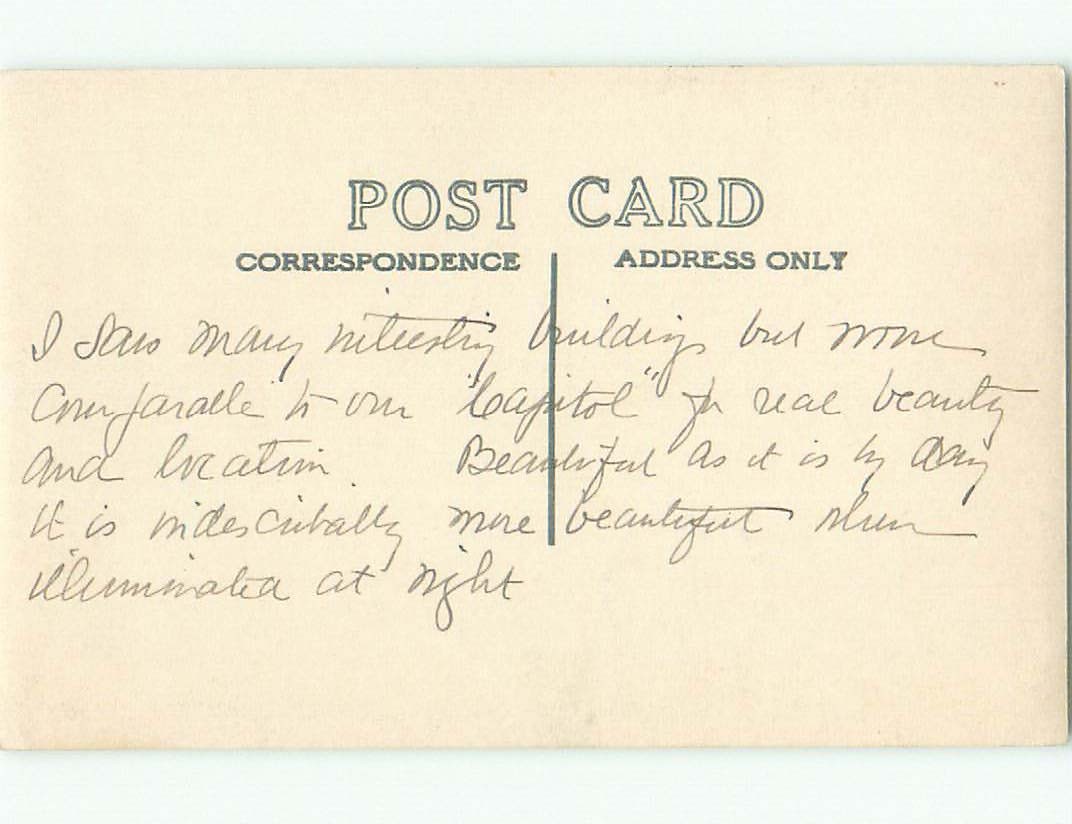 POST CARD
CORRESPONDENCE ADDRESS ONLY
I saw many interesting buildings but none
comparable to our "Capitol" for real beauty
and location Beautiful as it is by day
it is indescribably more beautiful when
illuminated at night